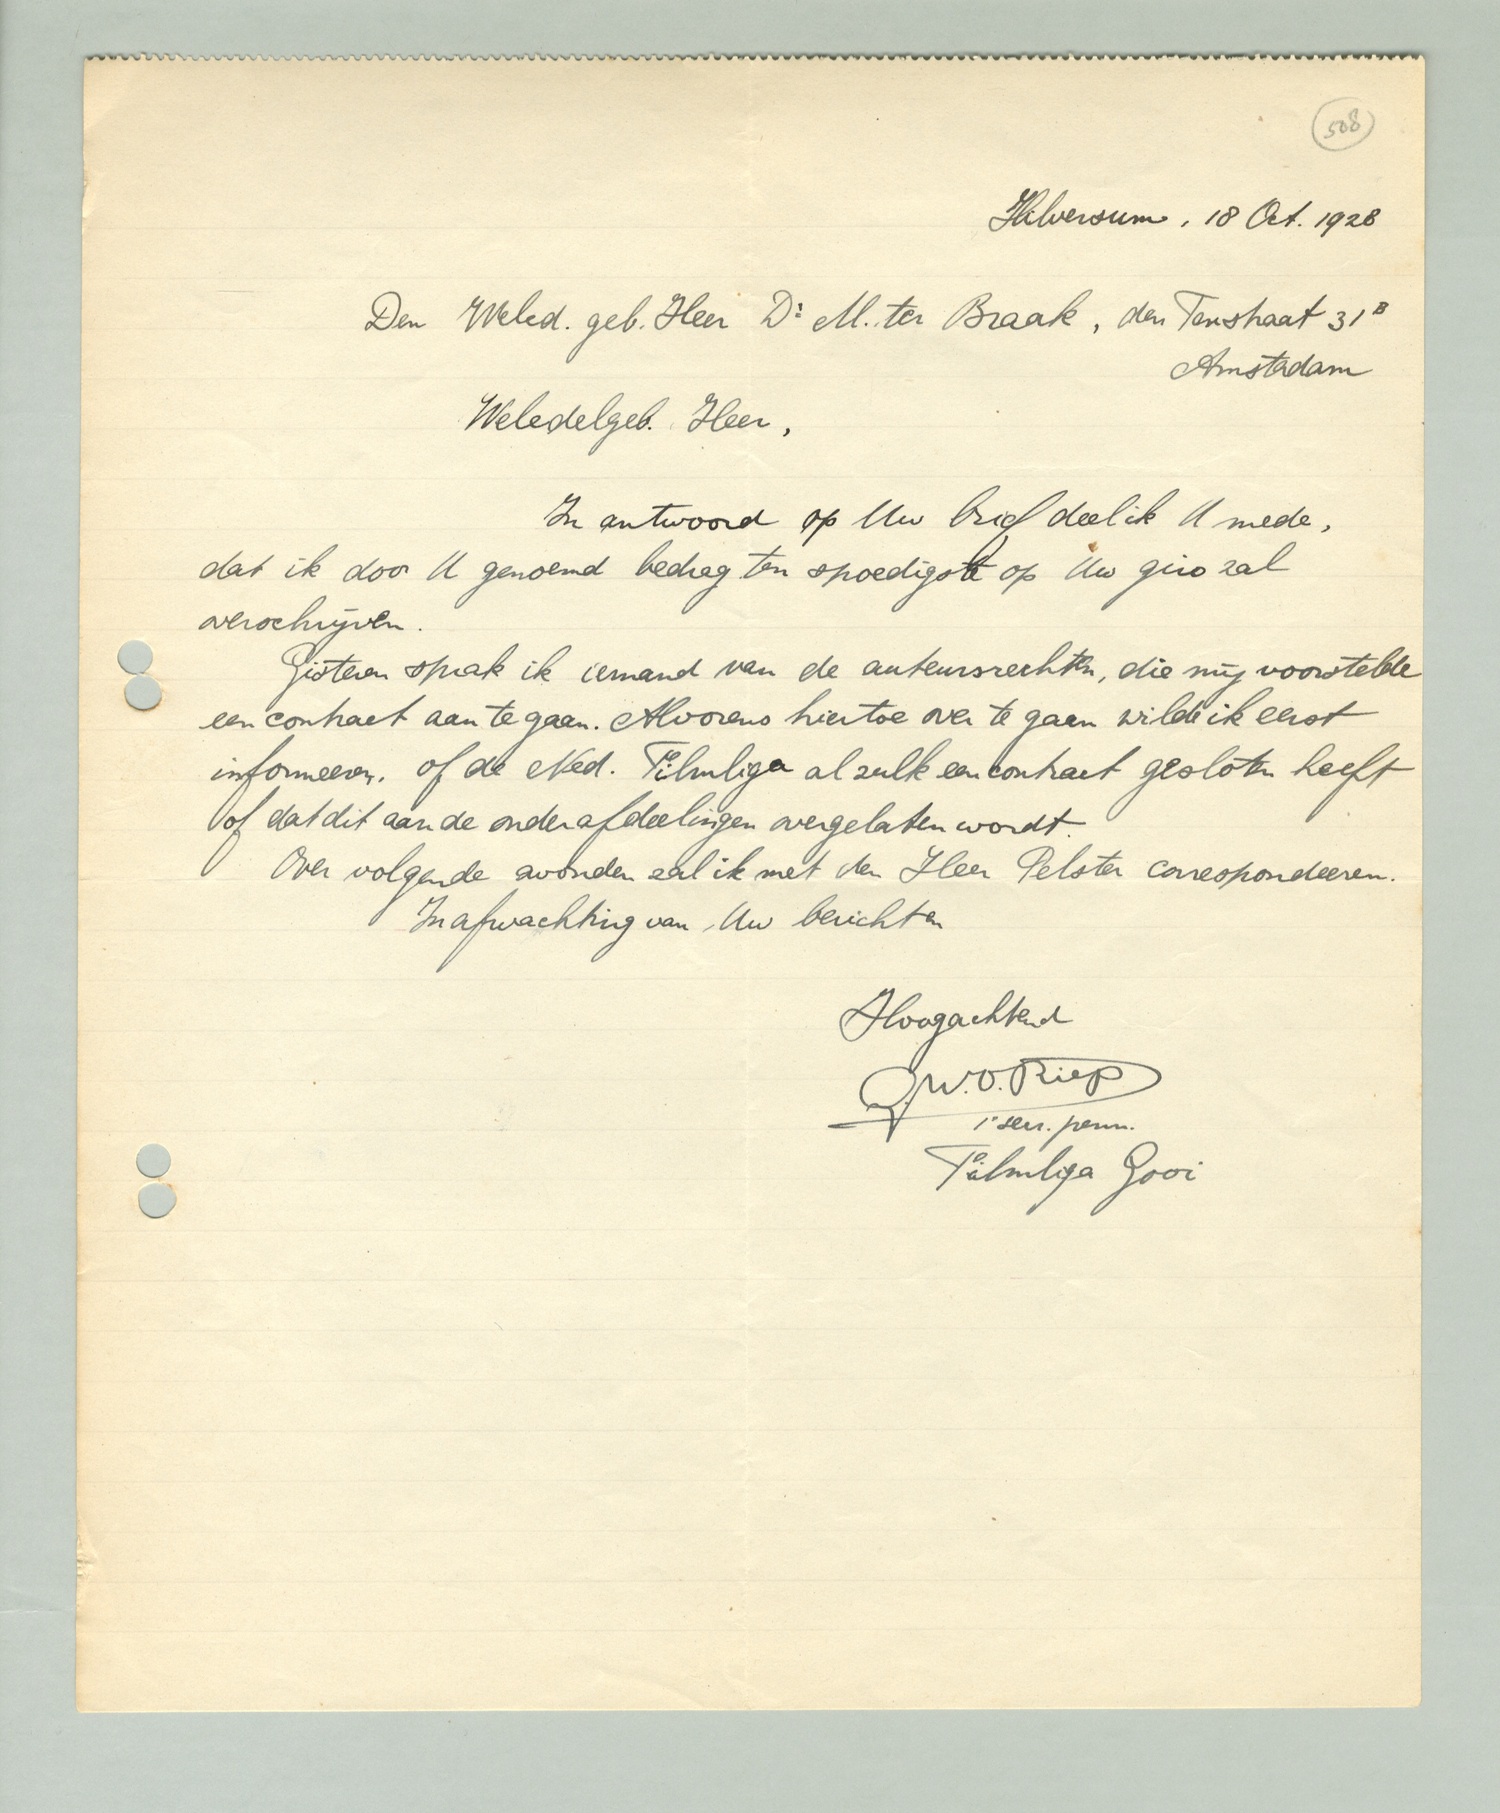 508
Hilversum, 18 Oct. 1928
Den Weled. geb. Heer Dr. M. ter Braak, den Texstraat 31B
Amsterdam
Weledelgeb. Heer,
In antwoord op Uw brief deel ik U mede,
dat ik door U genoemd bedrag ten spoedigste op Uw giro zal
overschrijven.
Gisteren sprak ik iemand van de auteursrechten, die mij voorstelde
een contract aan te gaan. Alvorens hiertoe over te gaan wilde ik eerst
informeeren. of de Ned. Filmliga al zulk een contract gesloten heeft
of dat dit aan de onderafdeelingen overgelaten wordt.
Over volgende avonden zal ik met den Heer Pelster correspondeeren.
In afwachting van Uw berichten
Hoogachtend
W.O. Riep
1e secr. penn.
Filmliga Gooi